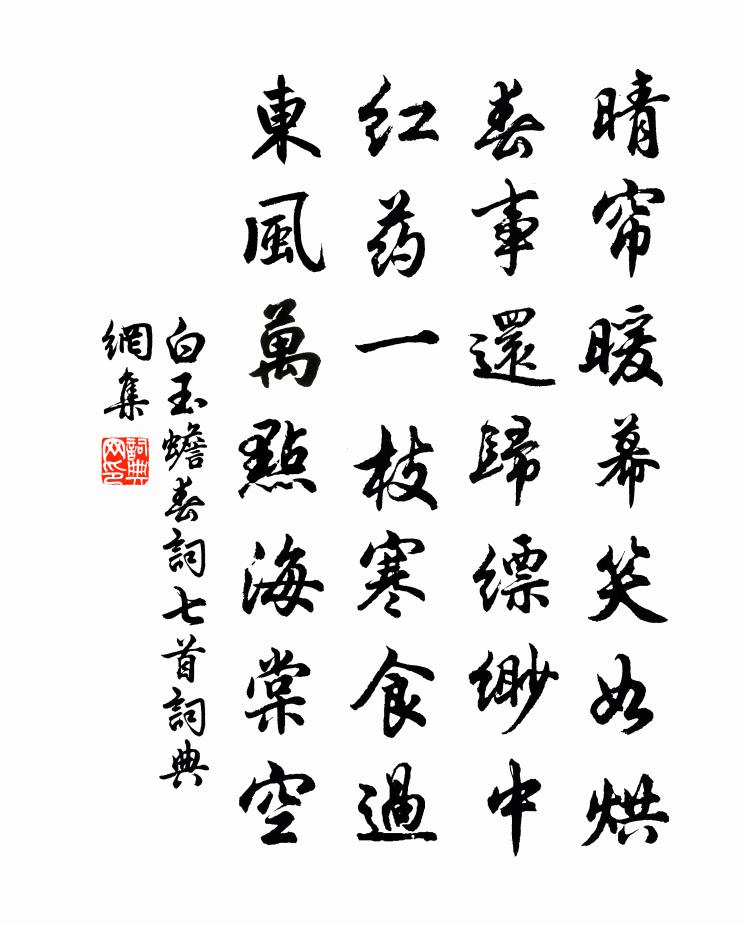 晴帘暖幕笑如烘
春事還歸縹緲中
红药一枝寒食過
東風萬點海棠空
白玉蟾春詞七首詞典
網集
詞典网印